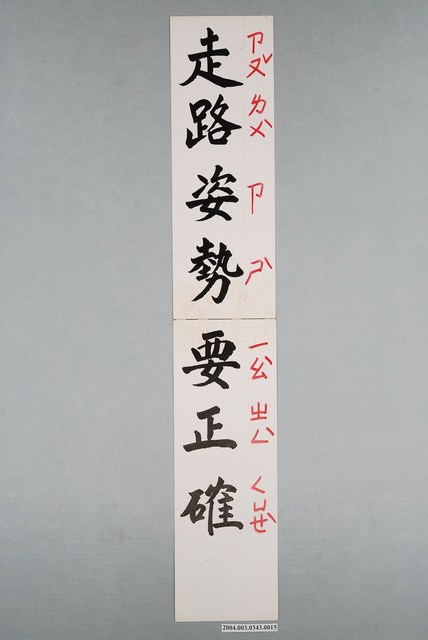 走路姿勢要正確
ㄗㄡˇ ㄌㄨˋ ㄗ ㄕˋ ㄧㄠˋ ㄓㄥˋ ㄑㄩㄝˋ
2004.003.0343.0015